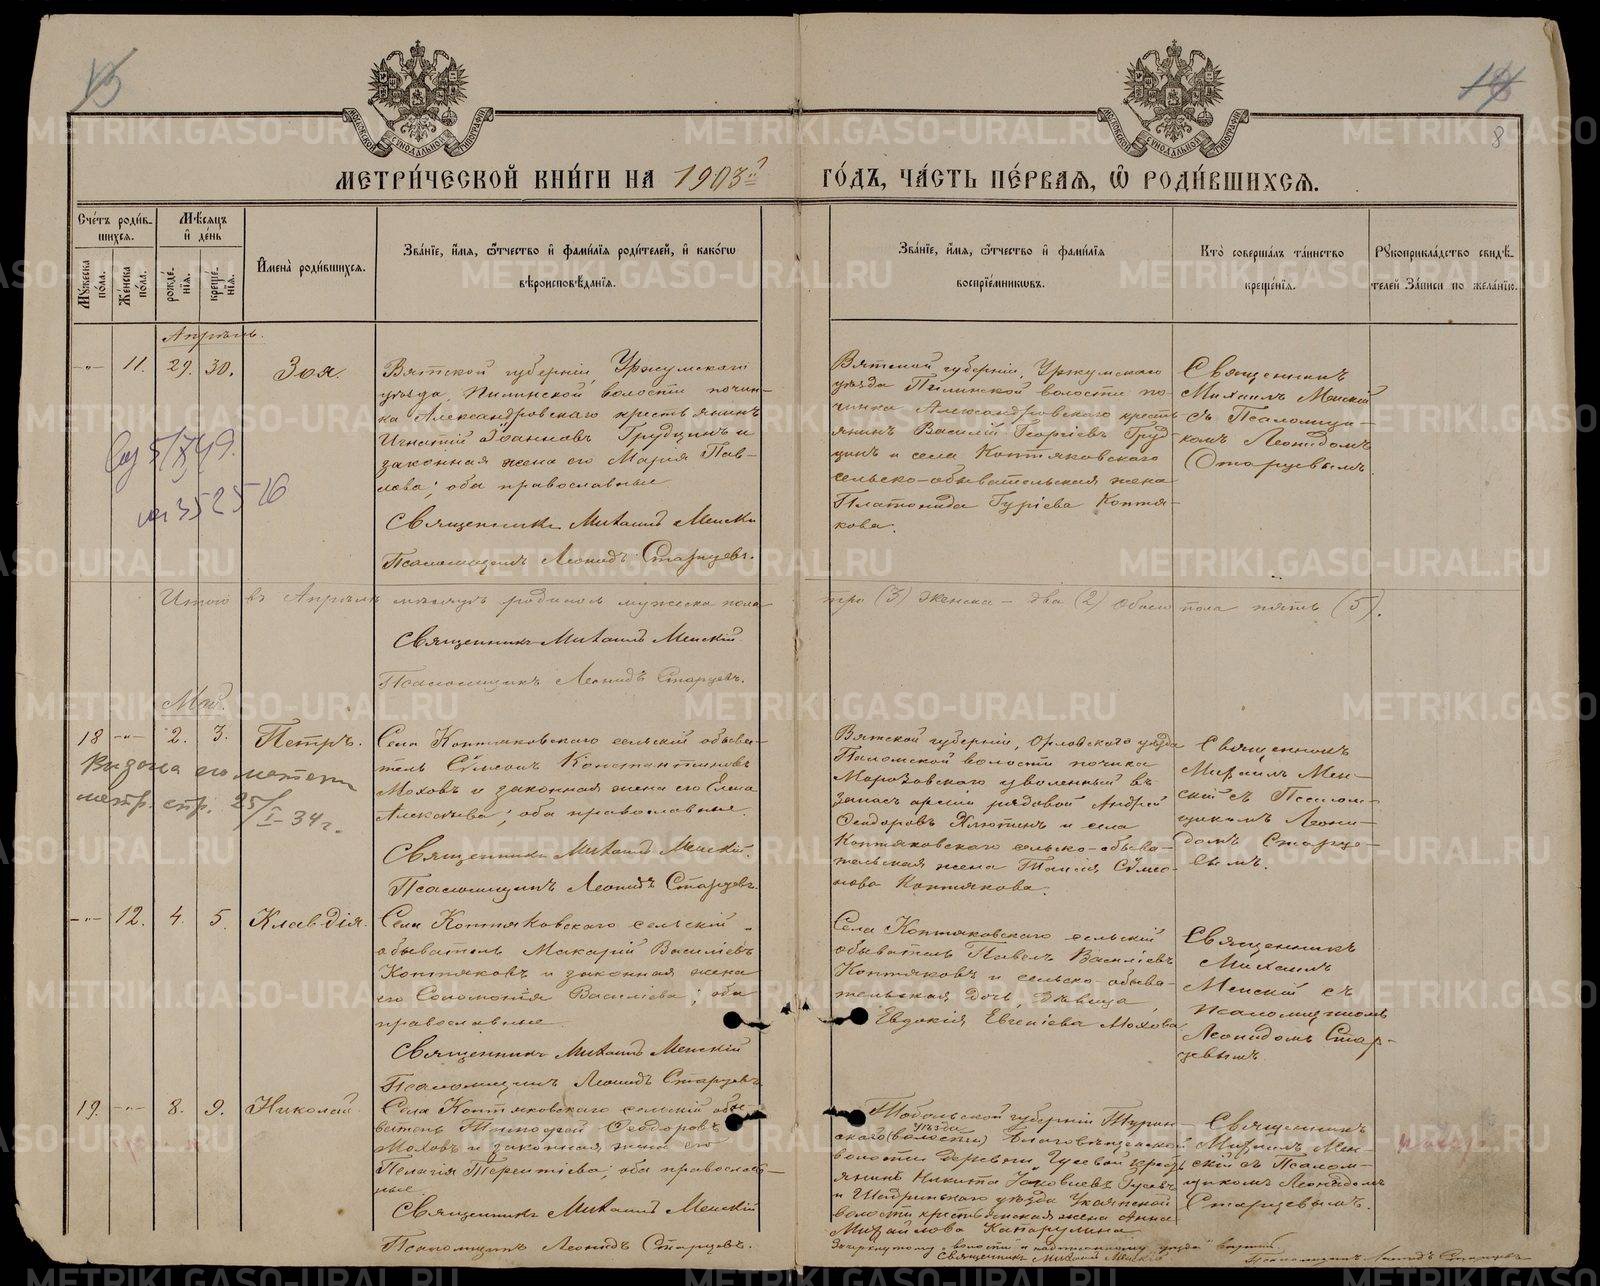 13
14
8
МЕТРИ́ЧЕСКОЙ КНИ́ГИ НА 1903й ГО́ДЪ, ЧА́СТЬ ПЕ́РВАЯ, Ѡ РОДИ́ВШИХСЯ.
Сче́тъ роди́в-
шихся.
Мѣсяцъ
и де́нь
Му́жеска
по́ла.
Же́нска
по́ла.
рожде́-
нія.
креще́-
нія.
Имена̀ роди́вшихся.
Зва́ніе, и́мя, ѻ́тчество и фами́лія роди́телей, и како́гѡ
вѣроисповѣ́данія.
Зва́ніе, и́мя, ѻ́тчество и фами́лія
воспріе́мниковъ.
Кто̀ соверша́лъ та́инство
креще́нія.
Рукоприкла́дство свидѣ́-
телей За́писи по жела́нію.
Апрѣль.
-"- 11. 29. 30. Зоя
Вятской губерніи, Уржумскаго
уѣзда, Пилинской волости почин-
ка Александровскаго крестьянинъ
Игнатій Іоанновъ Грудцинъ и
законная жена его Марія Пав-
лова; оба православные
Священникъ Михаилъ Менскій
Псаломщикъ Леонидъ Старцевъ.
Вятской губерніи, Уржумскаго
уѣзда Пилинской волости по-
чинка Александровскаго кресть-
янинъ Василій Георгіевъ Груд-
цинъ и села Коптяковскаго
сельско-обывательская жена
Платонида Гуріева Коптя-
кова.
Священникъ
Михаилъ Менскій
съ Псаломщи-
комъ Леонидомъ
Старцевымъ.
5/XI 49.
352516
Итого въ Апрѣлѣ мѣсяцѣ родилось мужеска пола три (3) женска - два (2) обоего пола пять (5).
Священникъ Михаилъ Менскій
Псаломщикъ Леонидъ Старцевъ.
Май.
18 -"- 2. 3. Петръ.
Села Коптяковскаго сельскій обыва-
тель Сѵмеонъ Константиновъ
Моховъ и законная жена его Елена
Алексѣева; оба православные.
Священникъ Михаилъ Менскій.
Псаломщикъ Леонидъ Старцевъ.
Вятской губерніи, Орловскаго уѣзда
Паломской волости починка
Марозовскаго уволенный въ
запасъ арміи рядовой Андрей
Ѳеодоровъ и села
Коптяковскаго сельско-обыва-
тельская жена Таисія Сѵмео-
нова Коптякова.
Священникъ
Михаилъ Мен-
скій съ Псалом-
щикомъ Леони-
домъ Старце-
вымъ.
Выдана
метр. стр. 25/I-34 г.
-"- 12. 4. 5. Клавдія.
Села Коптяковскаго сельскій
обыватель Макарій Василіевъ
Коптяковъ и законная жена
его Соломонія Василіева; оба
православные
Священникъ Михаилъ Менскій
Псаломщикъ Леонидъ Старцевъ
Села Коптяковскаго сельскій
обыватель Павелъ Василіевъ
Коптяковъ и сельско-обыва-
тельская дочь, дѣвица
Евдокія Евгеніева Мохова
Священникъ
Михаилъ
Менскій съ
псаломщикомъ
Леонидомъ Стар-
цевымъ.
19. -"- 8. 9. Николай
Села Коптяковскаго сельскій обы-
ватель Тимофей Ѳеодоровъ
Моховъ и законная жена его
Пелагія Терентіева; оба православ-
ные.
Священникъ Михаилъ Менскій
Псаломщикъ Леонидъ Старцевъ.
Тобольской губерніи Турин-
уѣзда
скаго (волости) Благовѣщенской
волости деревни Гусевой крест-
янинъ Никита Іаковлевъ Гусевъ
и Шадринскаго уѣзда
волости крестьянская жена Анна
Михайлова Катаргулина
Зачеркнутому "волости" и надписанному "уѣзда" вѣрить
Священникъ Михаилъ Менскій
Псаломщикъ Леонидъ Старцевъ
Священникъ
Михаилъ Мен-
скій съ Псалом-
щикомъ Леонидомъ
Старцевымъ.
METRIKI.GASO-URAL.RU